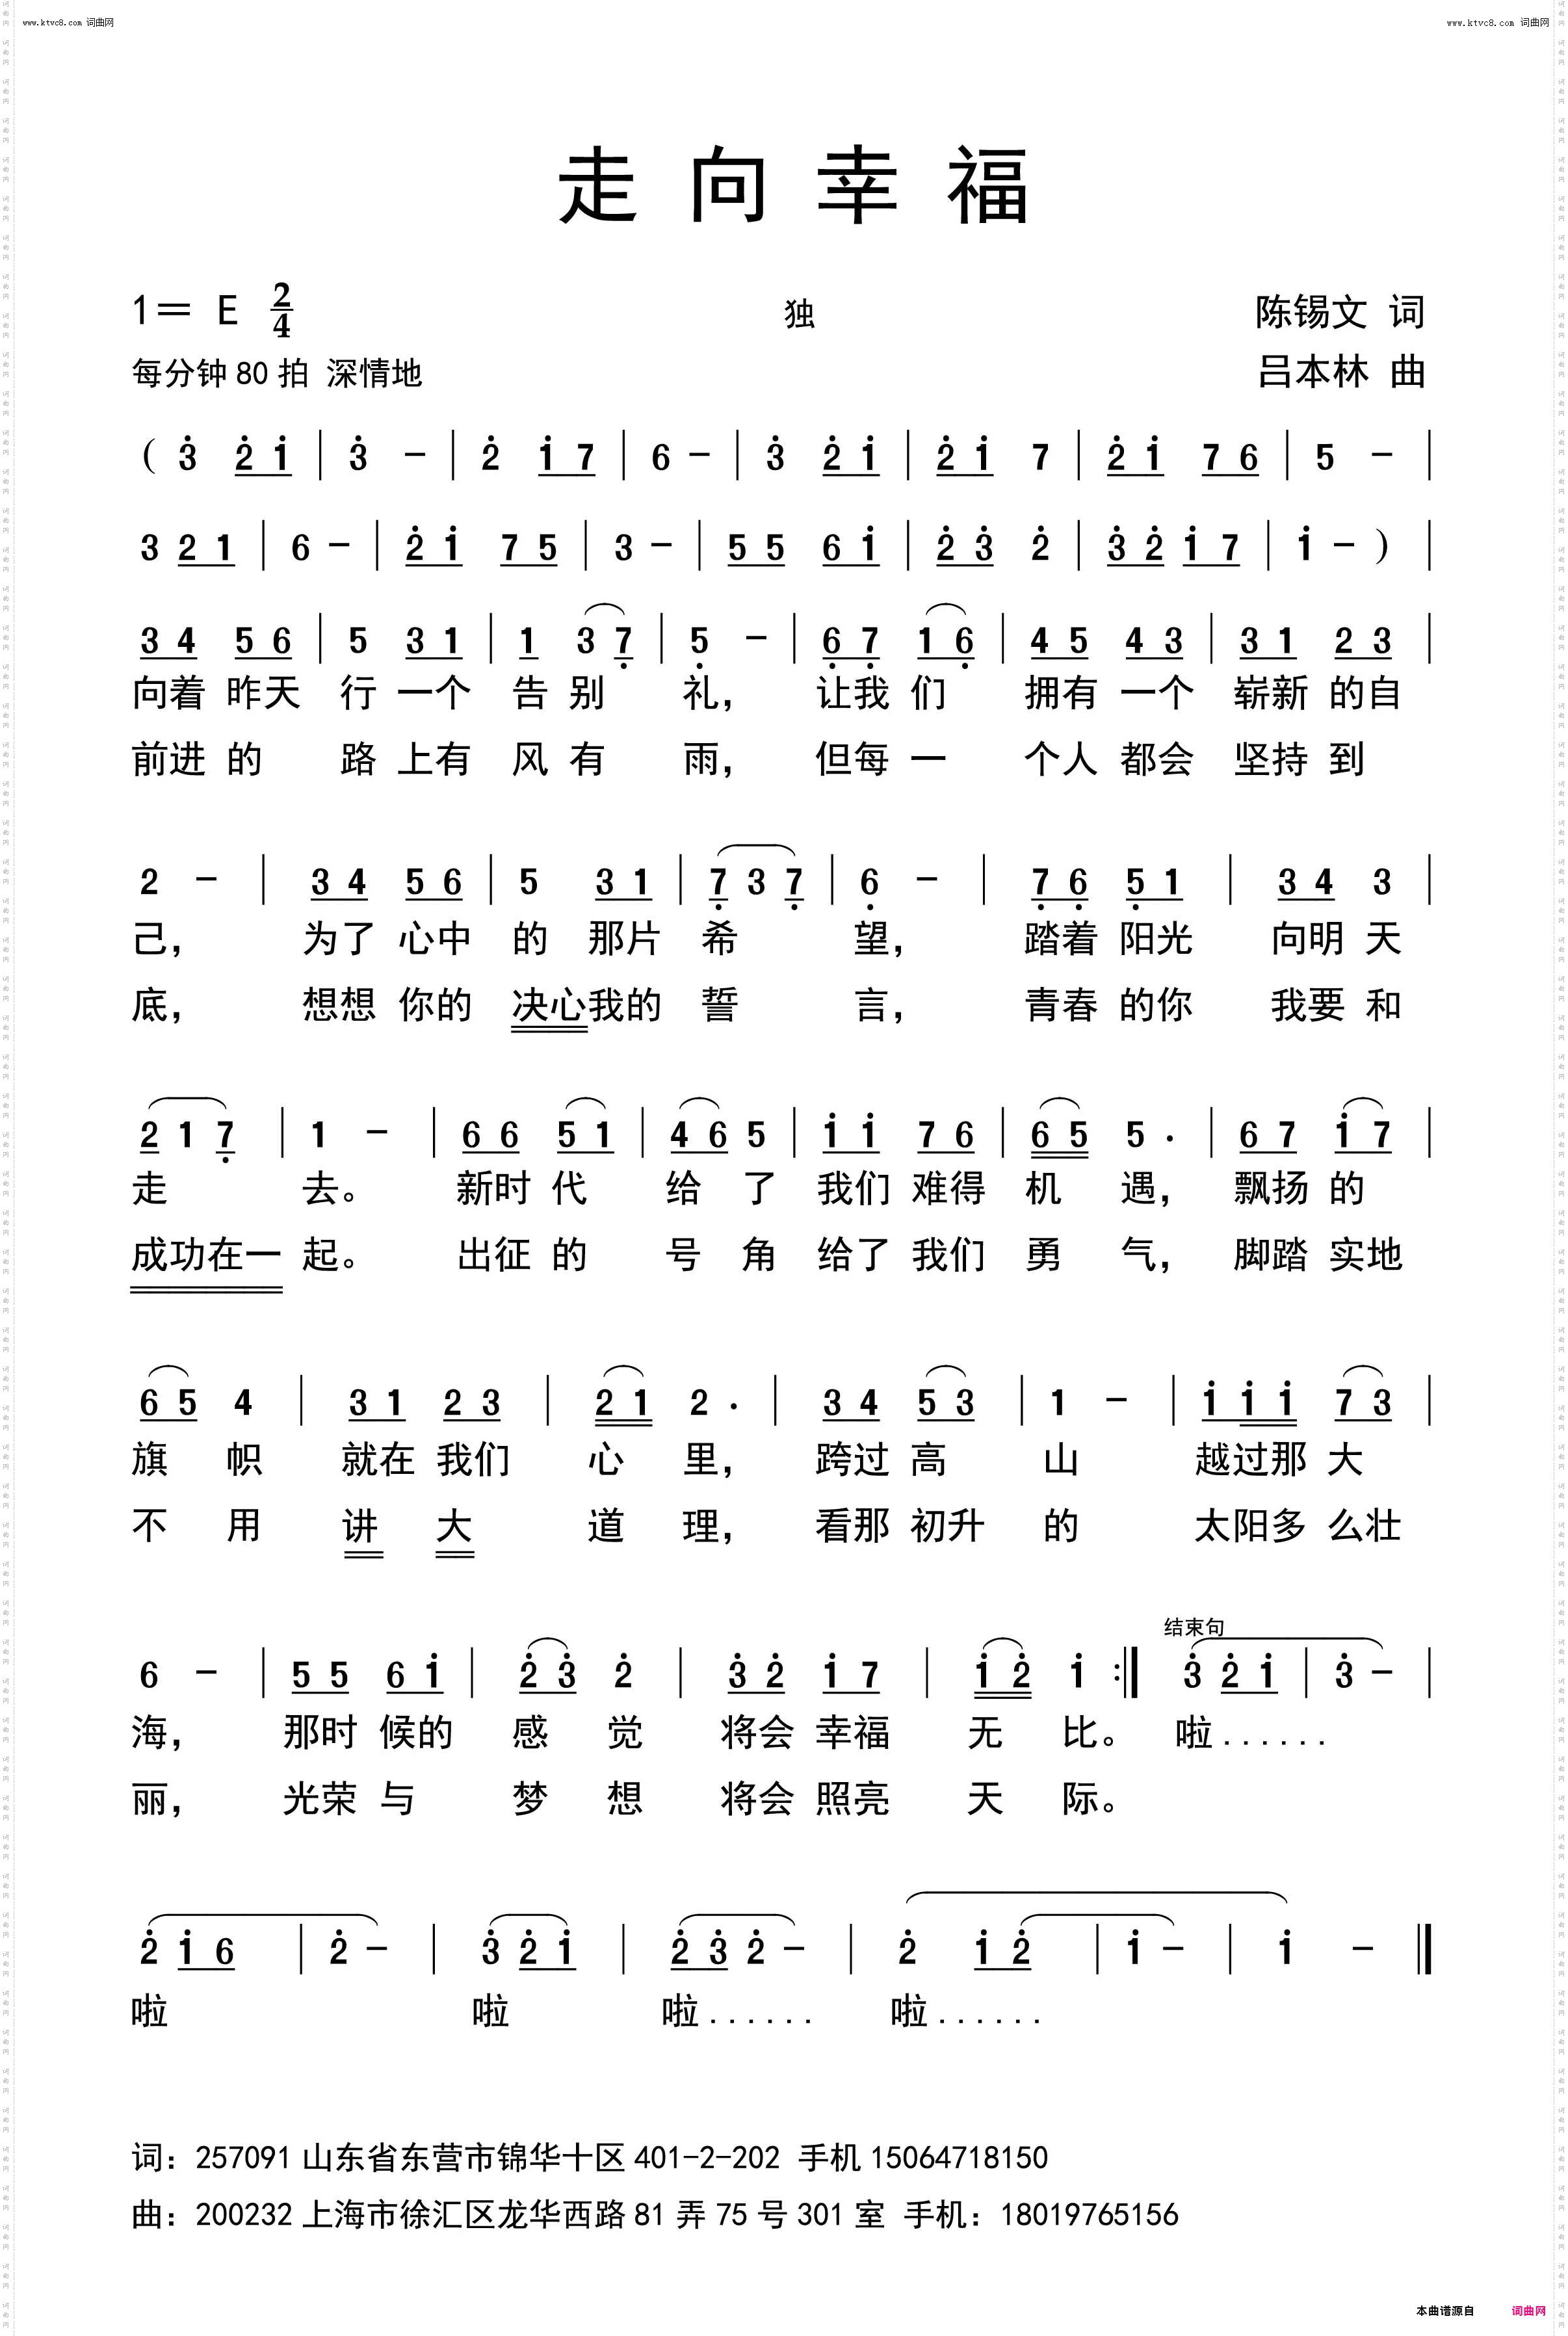 www.ktvc8.com 词曲网 www.ktvc8.com 词曲网
走向幸福
1= E 2/4 独 陈锡文 词
每分钟80拍 深情地 吕本林 曲
( 3̇ 2̇ 1̇ | 3̇ - | 2̇ 1̇ 7 | 6 - | 3̇ 2̇ 1̇ | 2̇ 1̇ 7 | 2̇ 1̇ 7 6 | 5 - |
3 2 1 | 6 - | 2̇ 1̇ 7 5 | 3 - | 5 5 6 1̇ | 2̇ 3̇ 2̇ | 3̇ 2̇ 1̇ 7 | 1̇ - ) |
3 4 5 6 | 5 3 1 | 1 3 7̣ | 5̣ - | 6̣ 7̣ 1 6̣ | 4 5 4 3 | 3 1 2 3 |
向着 昨天 行 一个 告 别 礼, 让我 们 拥有 一个 崭新 的自
前进 的 路 上有 风 有 雨, 但每 一 个人 都会 坚持 到
2 - | 3 4 5 6 | 5 3 1 | 7̣ 3 7̣ | 6̣ - | 7̣ 6̣ 5̣ 1 | 3 4 3 |
己, 为了 心中 的 那片 希 望, 踏着 阳光 向明 天
底, 想想 你的 决心我的 誓 言, 青春 的你 我要 和
2 1 7̣ | 1 - | 6 6 5 1 | 4 6 5 | 1̇ 1̇ 7 6 | 6 5 5 . | 6 7 1̇ 7 |
走 去。 新时 代 给 了 我们 难得 机 遇, 飘扬 的
成功在一 起。 出征 的 号 角 给了 我们 勇 气, 脚踏 实地
6 5 4 | 3 1 2 3 | 2 1 2 . | 3 4 5 3 | 1 - | 1̇ 1̇ 1̇ 7 3 |
旗 帜 就在 我们 心 里, 跨过 高 山 越过那 大
不 用 讲 大 道 理, 看那 初升 的 太阳多 么壮
结束句
6 - | 5 5 6 1̇ | 2̇ 3̇ 2̇ | 3̇ 2̇ 1̇ 7 | 1̇ 2̇ 1̇ :‖ 3̇ 2̇ 1̇ | 3̇ - |
海, 那时 候的 感 觉 将会 幸福 无 比。 啦......
丽, 光荣 与 梦 想 将会 照亮 天 际。
2̇ 1̇ 6 | 2̇ - | 3̇ 2̇ 1̇ | 2̇ 3̇ 2̇ - | 2̇ 1̇ 2̇ | 1̇ - | 1̇ - ‖
啦 啦 啦...... 啦......
词: 257091 山东省东营市锦华十区401-2-202 手机15064718150
曲: 200232 上海市徐汇区龙华西路81弄75号301室 手机: 18019765156
本曲谱源自 词曲网